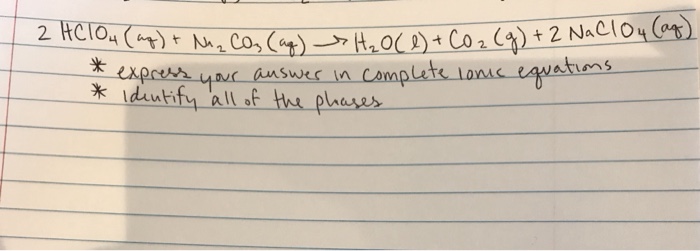 2 HClO₄ (aq) + Na₂ CO₃ (aq) → H₂O(l) + CO₂ (g) + 2 NaClO₄ (aq)
* express your answer in complete ionic equations
* identify all of the phases